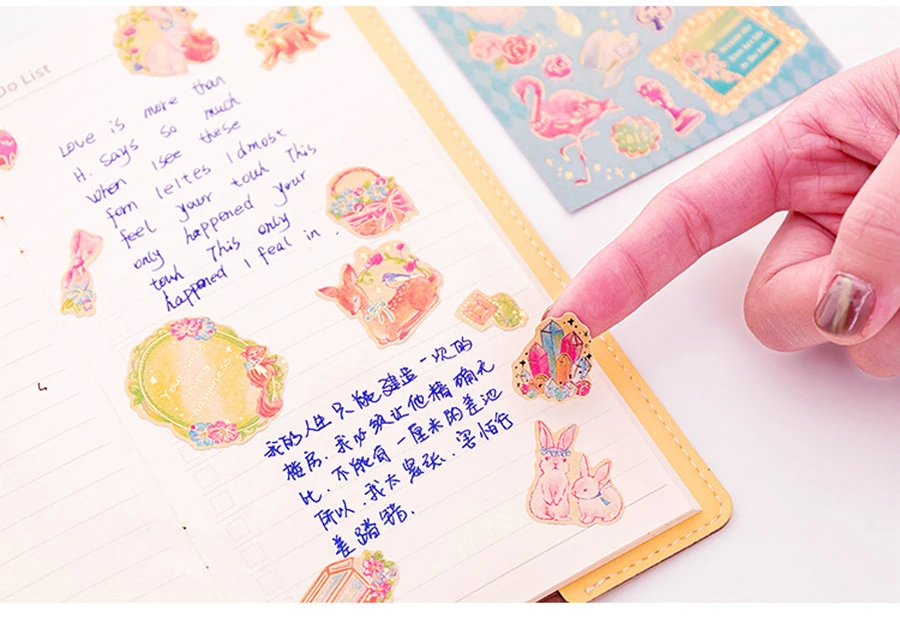 Do List
Love is more than
H. says so much
when I see these
fom leltes I dmost
feel your touh This
only happened your
touh This only
happened I feal in.
You
my
happiness
我的人生只能建造一次的
楼房.我必须让他精确无
比.不能有一厘米的差池
所以.我太紧张.害怕行
差踏错.